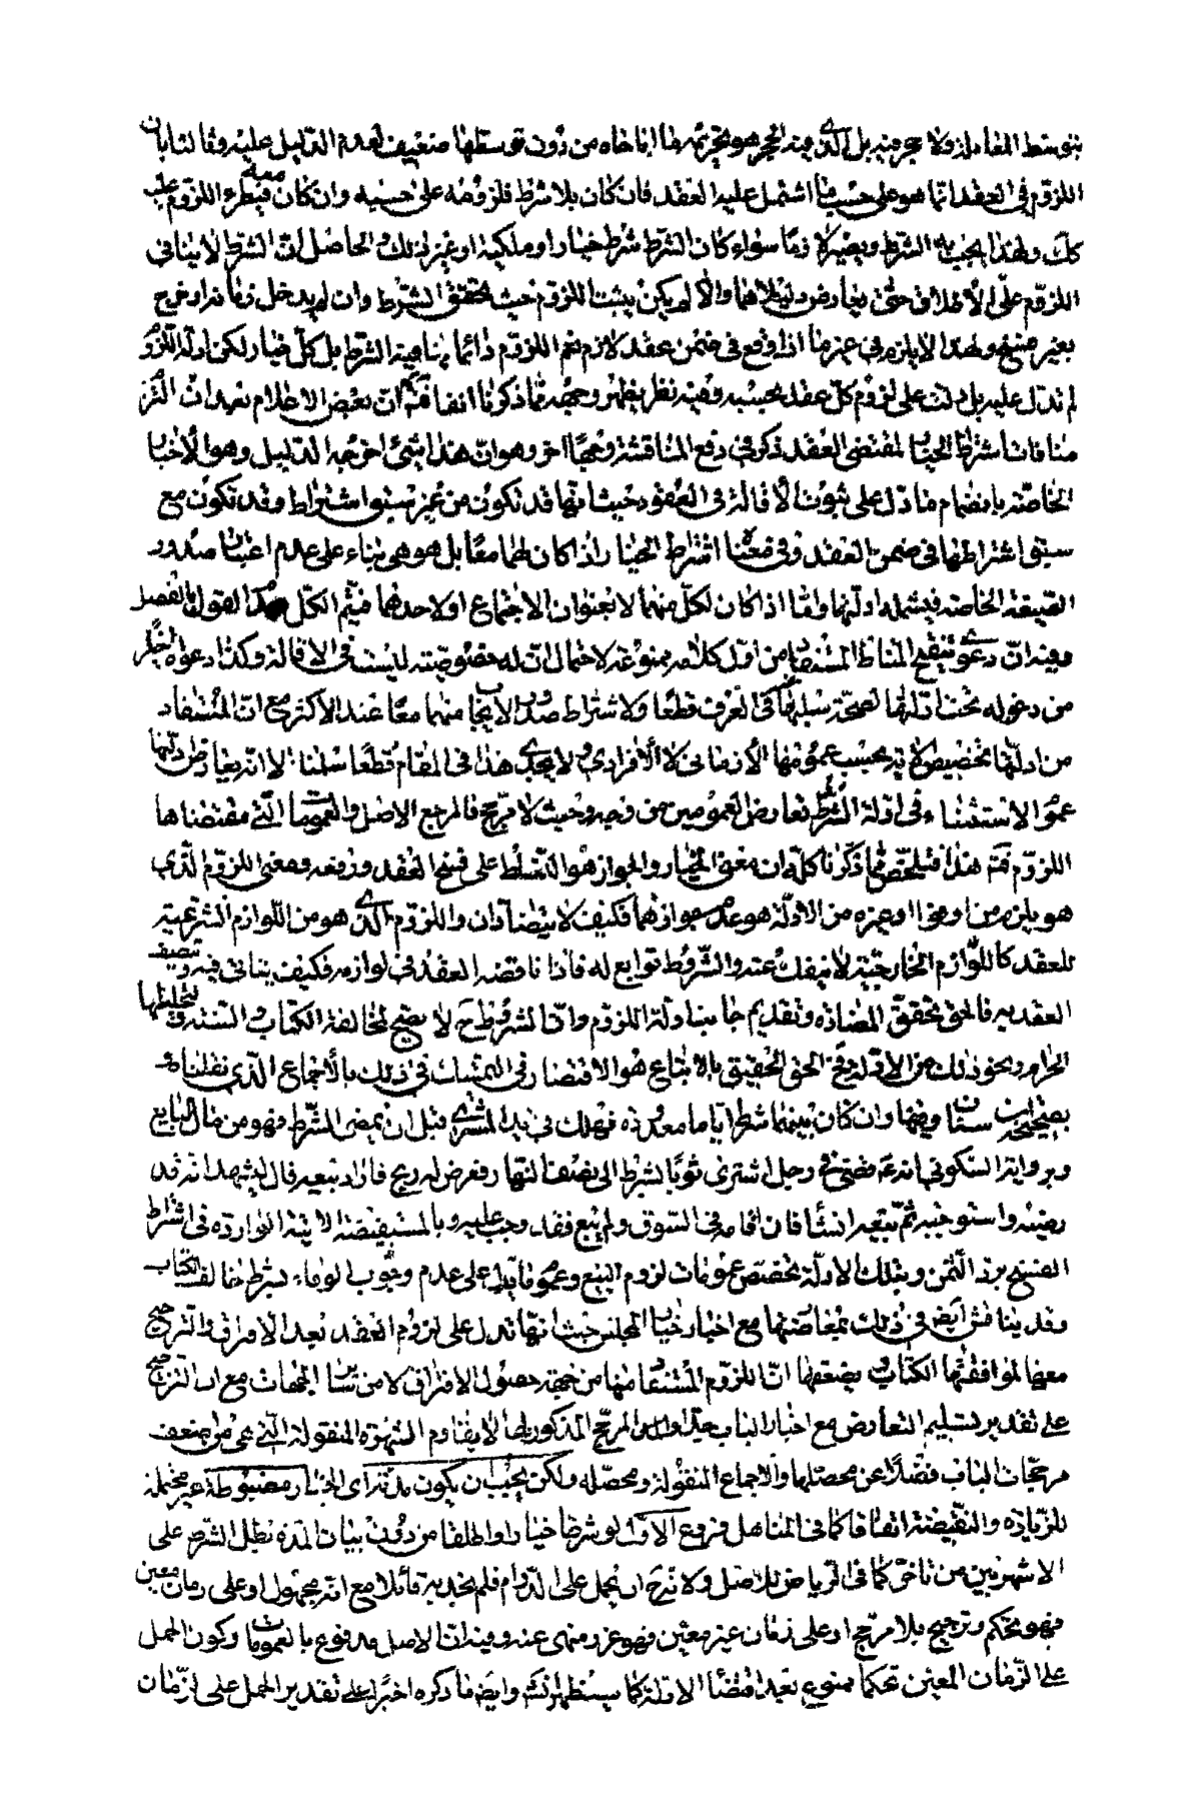 بتوسط المعاملة ولا حجر فيه بل الذي فيه الحجر هو تحريمهما اياه من دون توسطها ضعيف لعدم الدليل عليه وثالثا بان
اللزوم في العقد انما هو على حسب ما اشتمل عليه العقد فان كان بلا شرط فلزومه على حسبه وان كان معه فيطرء اللزوم عليه
كك ولهذا يجب الشرط ويصير لازما سواء كان الشرط شرط خيار او ملكية او غير ذلك والحاصل ان الشرط لا ينافي
اللزوم على الاطلاق حتى يعارض دليلاهما والا لم يكن يثبت اللزوم حيث يتحقق الشرط وان لم يدخل زمانه او خرج
بغير فسخ ولهذا لا يلزم في غير ما اذا وقع في ضمن عقد لازم نعم اللزوم دائما ينافيه الشرط بل كل خيار لكن ادلة اللزوم
لم تدل عليه بل دلت على لزوم كل عقد بحسبه وفيه نظر يظهر وجهه مما ذكرنا انفا ثم ان بعض الاعلام بعد اثبات
منافات اشتراط الخيار لمقتضى العقد ذكر في دفع المناقشة وجها اخر وهو ان هذا شيء اخرجه الدليل وهو الاخبار
الخاصة بانضمام ما دل على ثبوت الاقالة في العقود حيث انها قد تكون من غير سبق اشتراط وقد تكون مع
سبق اشتراطها في ضمن العقد وفي معنا اشتراط الخيار اذا كان لهما معا بل هو هي بناء على عدم اعتبار صدور
الصيغة الخاصة فيشمله ادلتها واما اذا كان لكل منهما لا بعنوان الاجتماع او لاحدهما فيتم الكل بعدم القول بالفصل
وفيه ان دعوى تنقيح المناط المستفاد من اول كلامه ممنوعة لاحتمال ان له خصوصية ليست في الاقالة وكذا دعواه اخيرا
من دخوله تحت ادلتها لصحة سلبها في العرف قطعا ولاشتراط صدور الايجاب منهما معا عند الاكثر مع ان المستفاد
من ادلتها تخصيص الاية بحسب عمومها الازماني لا الافرادي ولا يجدي هذا في المقام قطعا سلمنا لا انه يعارض دليلها
عموم الاستثناء في ادلة الشرط تعارض العمومين من وجه وحيث لا مرجح فالمرجع الاصل والعمومات التي مقتضاها
اللزوم ثم هذا فتلخص مما ذكرنا كله ان معنى الخيار والجواز هو التسلط على فسخ العقد ورفعه ومعنى اللزوم الذي
هو يلزم من اوفوا او غيره من الادلة هو عدم جوازهما فكيف لا يتضادان واللزوم الذي هو من اللوازم الشرعية
للعقد كاللوازم الخارجية لا ينفك عنه والشروط توابع له فاذا ناقضه العقد في لوازمه فكيف يناقي فيه وتصيف
العقد به فالحق تحقق المضادة وتقديم جانب ادلة اللزوم وان الشروط ح لا يصح لمخالفة الكتاب والسنة وتحليلها
الحرام ونحو ذلك من الادلة وح الحق الحقيق بالاتباع هو الاقتصار في التمسك في ذلك بالاجماع الذي نقلناه
بصحيحة ابن سنان وفيها وان كان بينهما شرطا اياما معدودة فهلك في يد المشتري قبل ان يمضي الشرط فهو من مال البايع
وبرواية السكوني انه ع قضى في رجل اشترى ثوبا بشرط الى نصف النهار فعرض له ربح فاراد بيعه قال ليشهد انه قد
رضيه واستوجبه ثم ليبعه ان شاء فان اقامه في السوق ولم يبع فقد وجب عليه وبالمستفيضة الاتية الواردة في اشتراط
الفسخ برد الثمن وبتلك الادلة تخصص عمومات لزوم البيع وعموم ما دل على عدم وجوب الوفاء بشرط خالف الكتاب
وقد يناقش ايض في ذلك بمعارضتها مع اخبار خيار المجلس حيث انها تدل على لزوم العقد بعد الافتراق والترجيح
معها لموافقتها الكتاب يضعفها ان اللزوم المستفاد منها من جهة حصول الافتراق لا من سائر الجهات مع ان الترجيح
على تقدير تسليم التعارض مع اخبار الباب جدا والمرجح المذكور لها لا يقاوم الشهرة المنقولة التي هي من اضعف
مرجحات الباب فضلا عن محصلها والاجماع المنقولة ومحصله ولكن يجب ان يكون مدته اى الخيار مضبوطة غير محتملة
للزيادة والنقيصة اتفاقا كما في المناهل فروع الاول لو شرطا خيارا واطلقا من دون بيان المدة بطل الشرط على
الاشهر بين من تاخر كما في الرياض للاصل ولانه ح ان يحمل على الدوام فلم نجد به قائلا مع انه مجهول او على زمان معين
فهو تحكم وترجيح بلا مرجح او على زمان غير معين فهو غرر منهى عنه وفيه ان الاصل مدفوع بالعمومات وكون الحمل
على الزمان المعين تحكما ممنوع بعد اقتضاء الادلة كما ستظهر لك وايض ما ذكره اخيرا على تقدير الحمل على الزمان